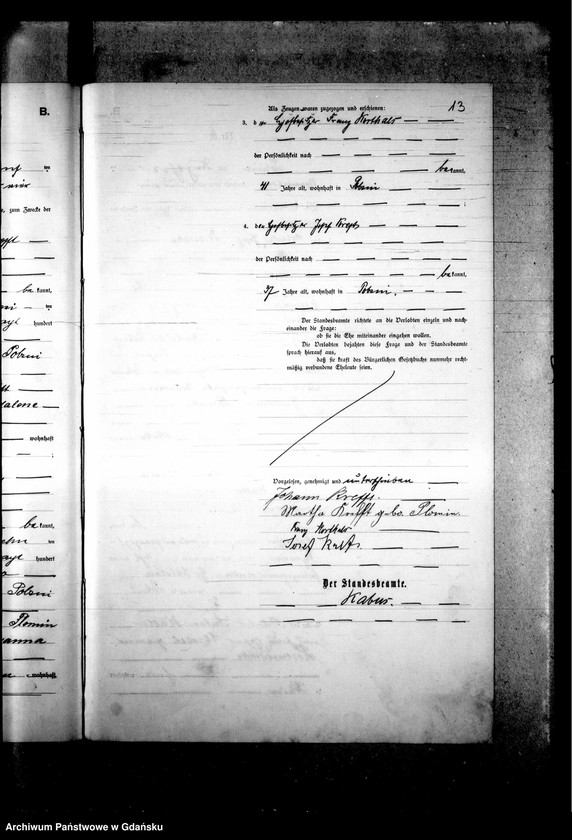 B.
zum Zwecke der
kannt,
hundert
Polzni
wohnhaft
kannt,
hundert
Polzni
Plomin
wohnhaft
13
Als Zeugen waren zugezogen und erschienen:
3. der Hofbesitzer Franz Korthals
der Persönlichkeit nach
bekannt,
41 Jahre alt, wohnhaft in Polzni
;
4. der Hofbesitzer Josef
der Persönlichkeit nach
bekannt,
37 Jahre alt, wohnhaft in Polzni.
Der Standesbeamte richtete an die Verlobten einzeln und nach-
einander die Frage:
ob sie die Ehe miteinander eingehen wollen.
Die Verlobten bejahten diese Frage und der Standesbeamte
sprach hierauf aus,
daß sie kraft des Bürgerlichen Gesetzbuchs nunmehr recht-
mäßig verbundene Eheleute seien.
Vorgelesen, genehmigt und unterschrieben
Johann Krefft.
Martha Krefft geb. Plomin.
Franz Korthals
Josef
Der Standesbeamte.
Kabus.
Archiwum Państwowe w Gdańsku